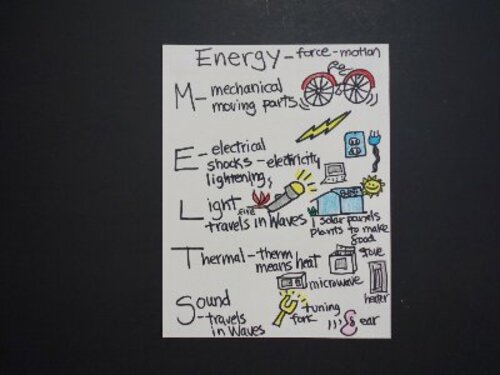 Energy - force - motion
M - mechanical
moving parts
E - electrical
shocks - electricity
lightening,
Light fire
travels in waves
solar panels
plants to make
food
Thermal - therm
means heat
stove
microwave
heater
Sound
- travels
in waves
tuning
fork
ear